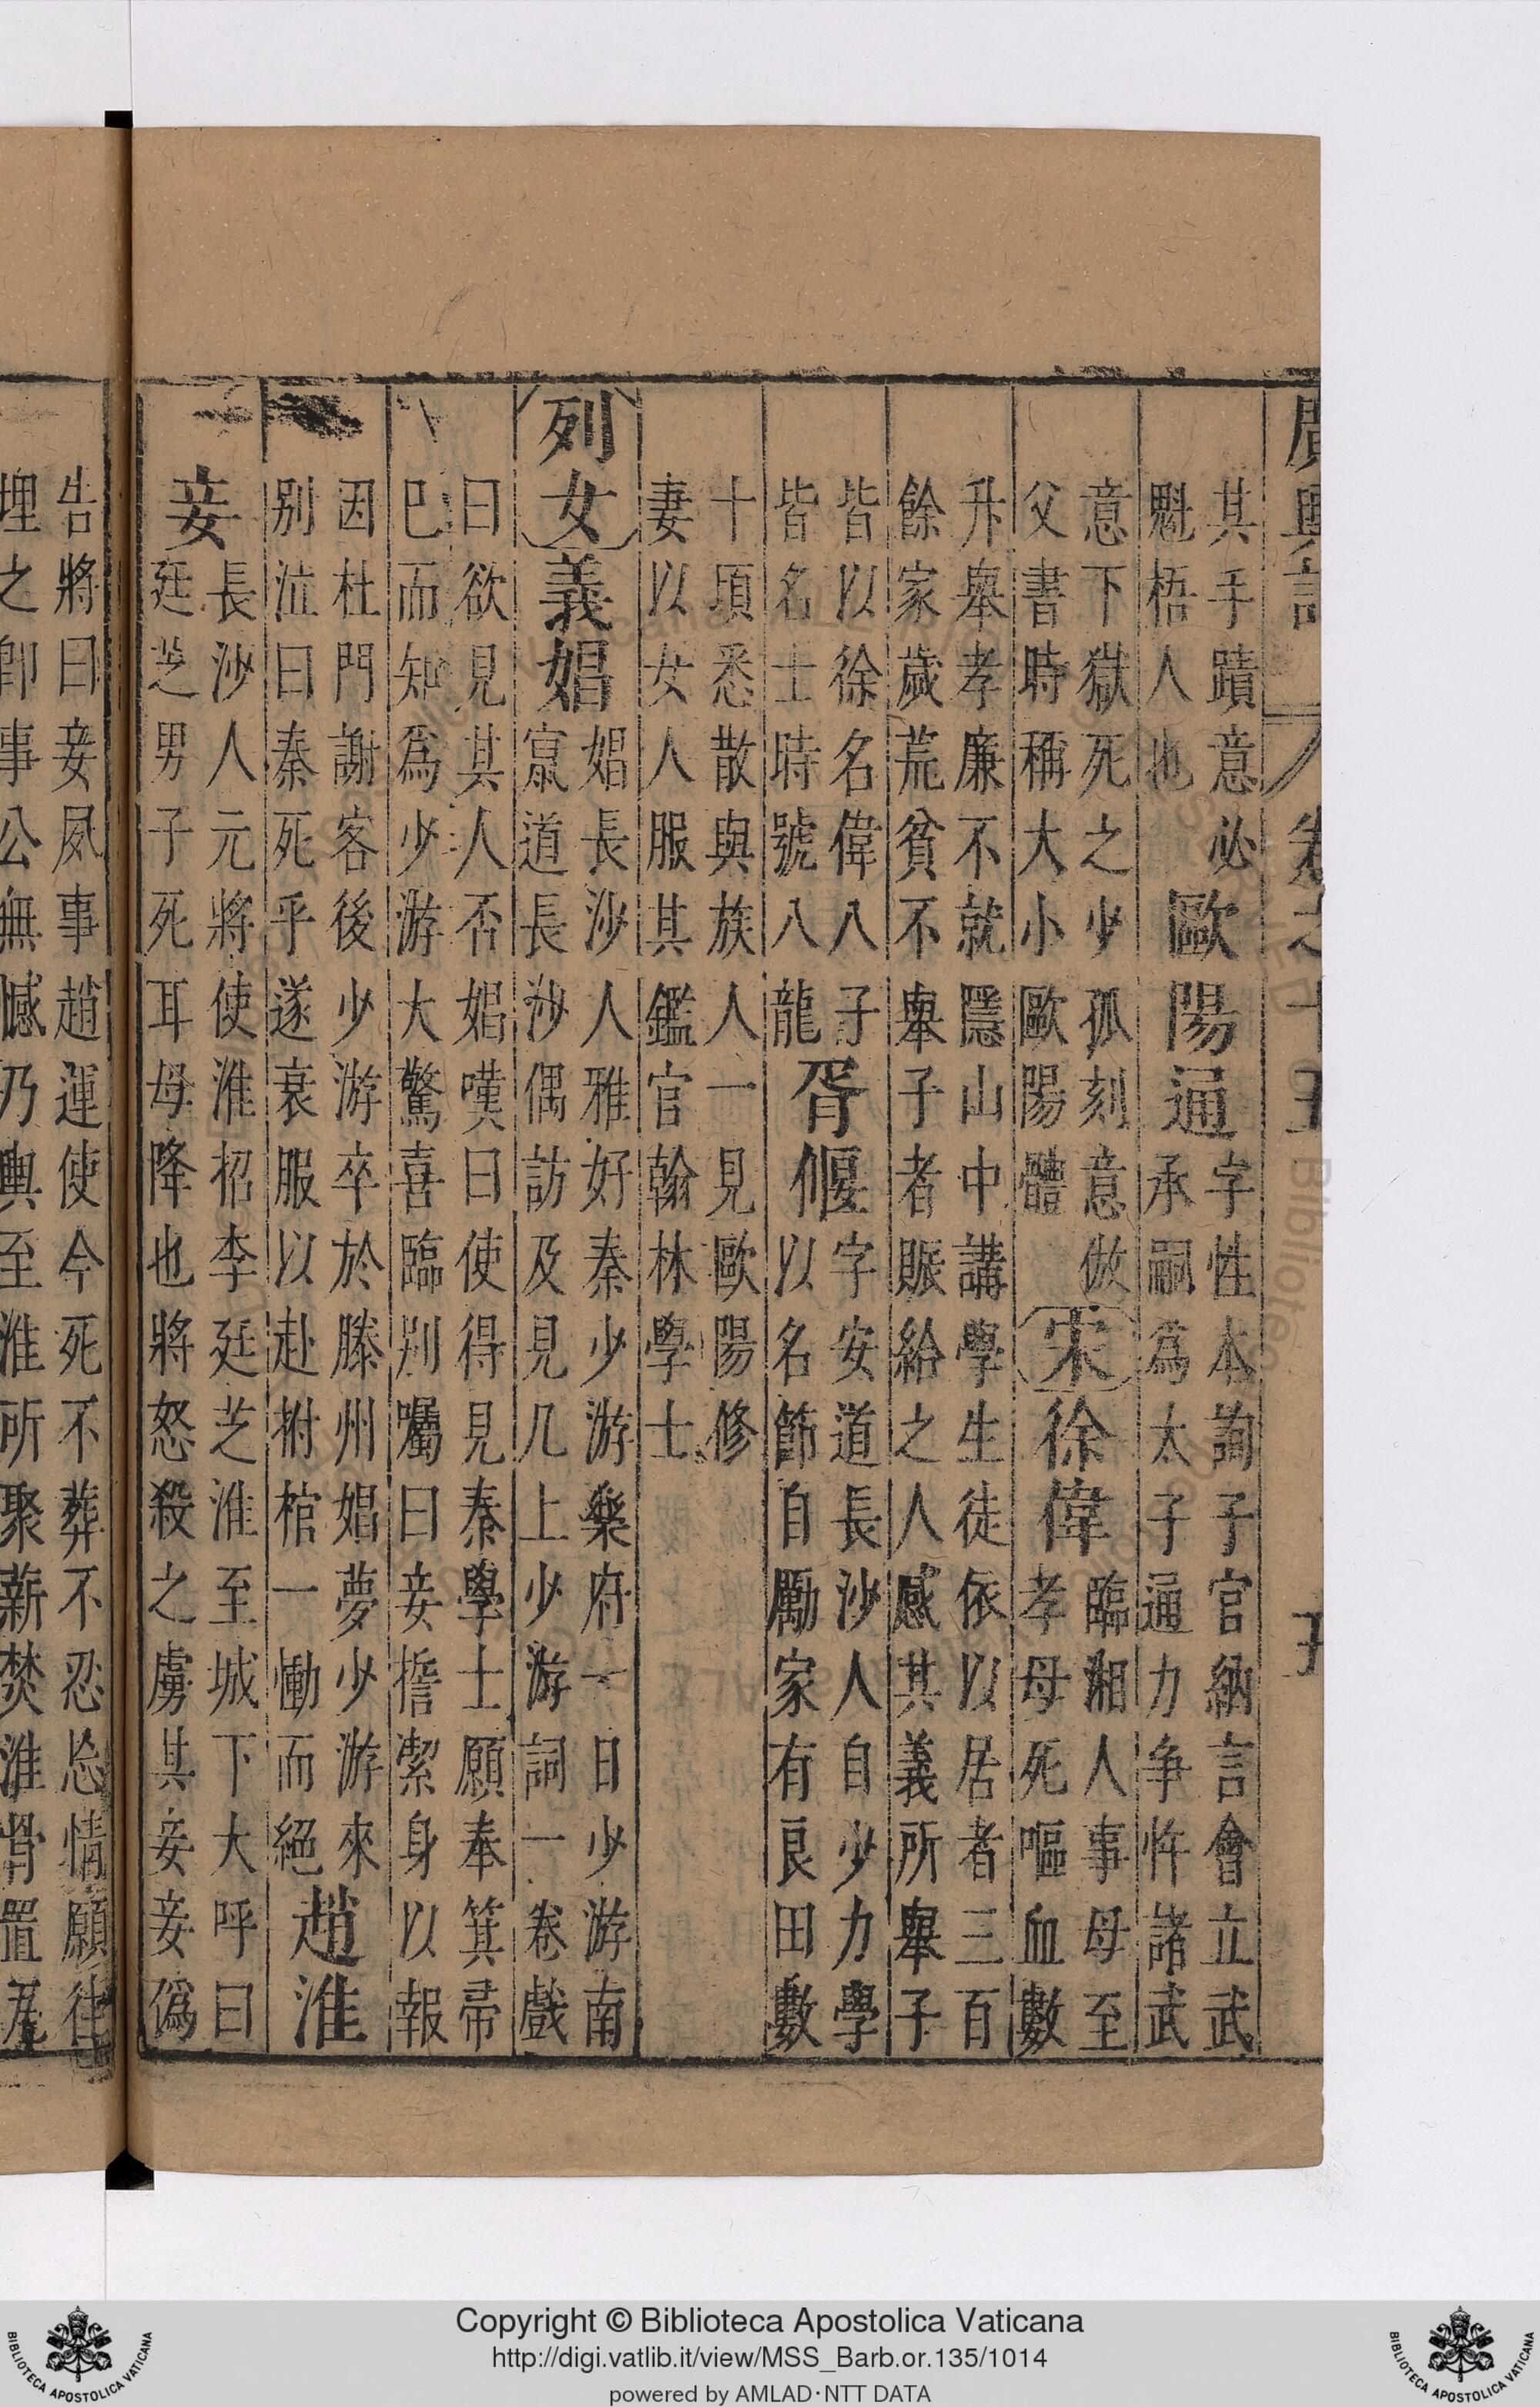 廣輿記 卷之十五
其手蹟意必
魁梧人也
歐陽通
字性本詢子官納言會立武
承嗣為太子通力争忤諸武
意下獄死之少孤刻意倣
父書時稱大小歐陽體
宋
徐偉
臨湘人事母至
孝母死嘔血數
升舉孝廉不就隱山中講學生徒依以居者三百
餘家歲荒貧不舉子者賑給之人感其義所舉子
皆以徐名偉八子
皆名士時號八龍
胥偃
字安道長沙人自少力學
以名節自勵家有良田數
十頃悉散與族人一見歐陽修
妻以女人服其鑑官翰林學士
列女
義娼
娼長沙人雅好秦少游樂府一日少游南
竄道長沙偶訪及見几上少游詞一卷戲
曰欲見其人否娼嘆曰使得見秦學士願奉箕帚
巳而知爲少游大驚喜臨別囑曰妾擔潔身以報
因杜門謝客後少游卒於滕州娼夢少游來
別泣曰秦死乎遂衰服以赴拊棺一慟而絕
趙淮
妾
長沙人元將使淮招李廷芝淮至城下大呼曰
廷芝男子死耳母降也將怒殺之虜其妾妾偽
告將曰妾夙事趙運使今死不葬不忍恝情願往
埋之卽事公無憾乃輿至淮所聚薪焚淮骨置瓦
Copyright © Biblioteca Apostolica Vaticana
http://digi.vatlib.it/view/MSS_Barb.or.135/1014
powered by AMLAD·NTT DATA
BIBLIOTECA APOSTOLICA VATICANA
BIBLIOTECA APOSTOLICA VATICANA